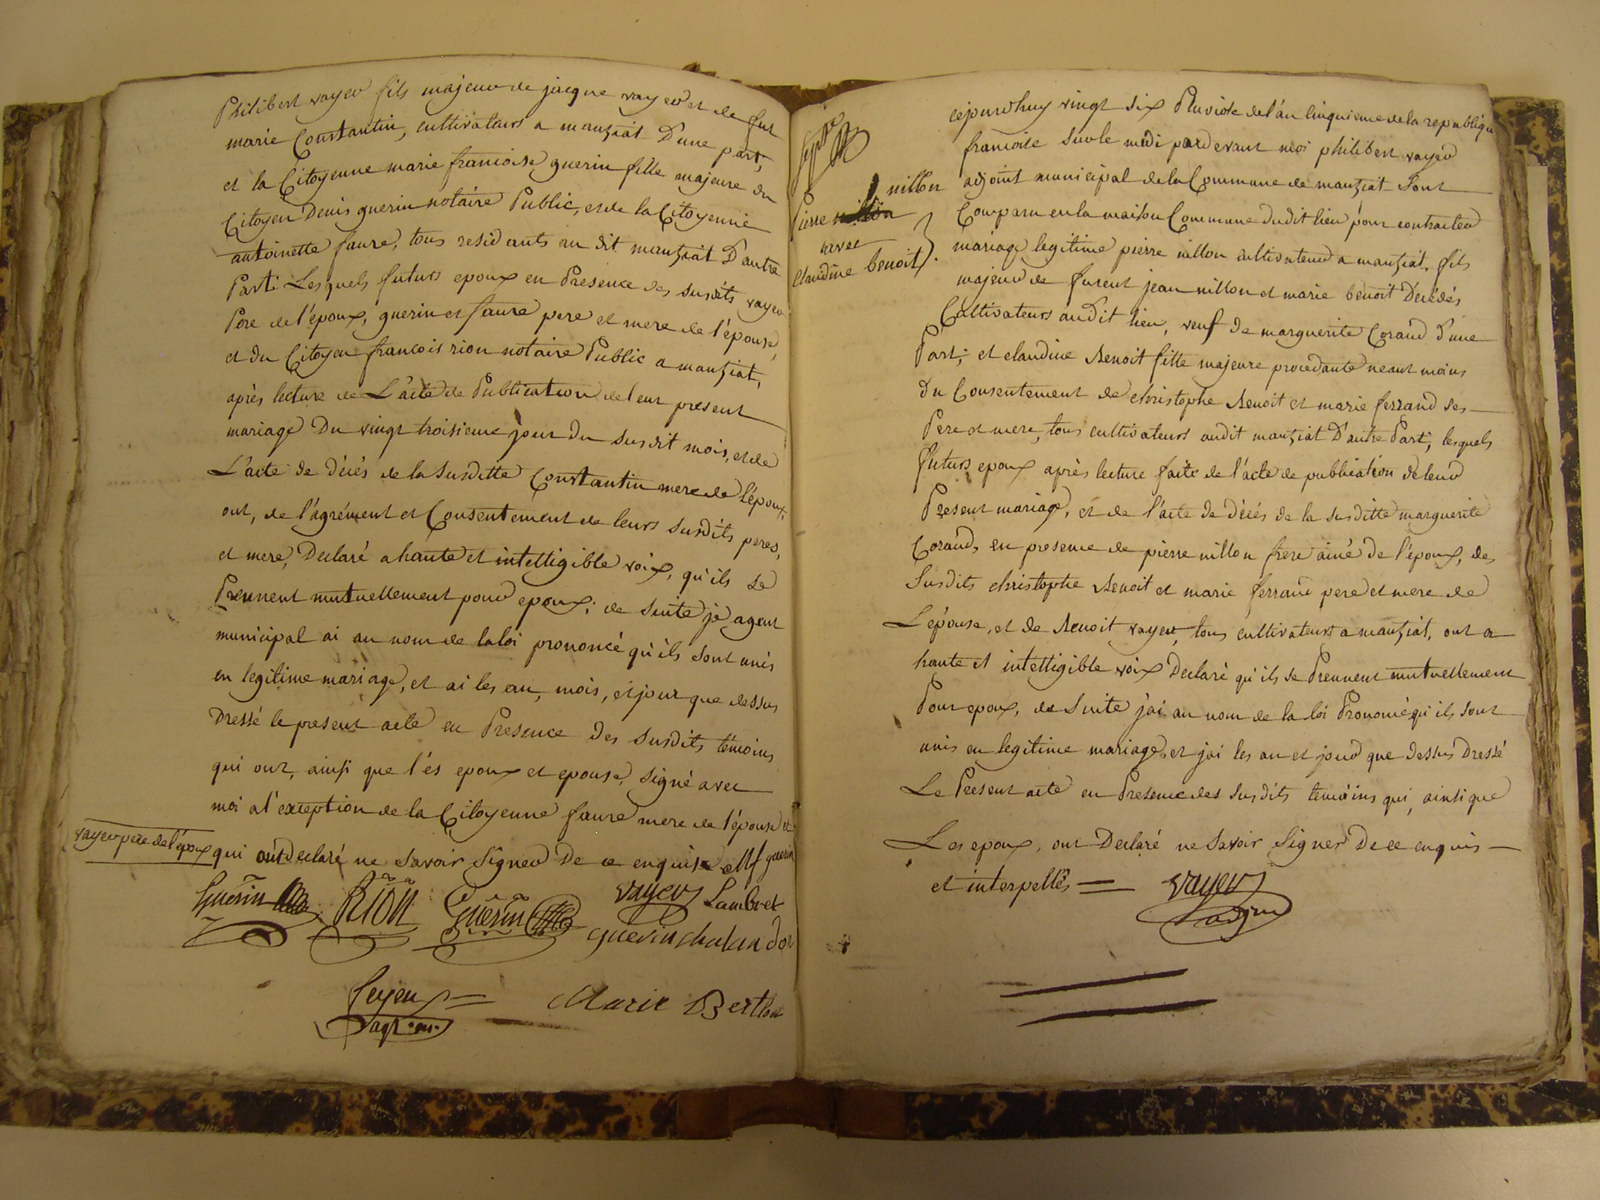 Philibert vayer fils majeur de jacque vayer et de fut
marie Constantin, cultivateurs a manziat D'une part,
et la Citoyenne marie francoise guerin fille majeure du
Citoyen Denis guerin notaire Public, et de la Citoyenne
antoinette faure, tous residants au dit manziat D'autre
Part. Lesquels futurs epoux en Presence des susdits vayer
Pere de l'époux, guerin et faure pere et mere de l'épouse,
et du Citoyen francois rion notaire Public a manziat,
après lecture de L'acte de Publication de leur present
mariage Du vingt troisieme jour du susdit mois, et de
L'acte de décés de la susditte Constantin mere de l'époux,
ont, de l'agrément et Consentement de leurs susdits peres,
et mere, Declaré a haute et intelligible voix, qu'ils se
Prennent mutuellement pour epoux; de suite je agent
municipal ai au nom de la loi prononcé qu'ils sont unis
en legitime mariage, et ai les an, mois, et jour que dessus
Dressé le present acte en Presence des susdits témoins
qui ont, ainsi que l'és epoux et epouse, signé avec
moi a l'exception de la Citoyenne faure mere de l'épouse et
vayer pere de l'époux qui ont declaré ne savoir signer De ce enquis MF guerin
Guérin RION Guérin vayer Lambret
guerin chalandon
feyeux Marie Berthou
agt. mu.
Pierre nillon
avec
claudine benoit
cejourdhuy vingt six Pluviose de l'an Cinquieme de la republique
francoise sur le midi pardevant moi philibert vayer
adjoint municipal de la Commune de manziat sont
Comparu en la maison Commune dudit lieu pour contracter
mariage legitime pierre nillon cultivateur a manziat, fils
majeur de furent jean nillon et marie benoit Décédés
Cultivateurs audit lieu, veuf de marguerite Corand D'une
Part; et claudine Benoit fille majeure procedante neant moins
Du Consentement de christophe Benoit et marie ferrand ses
Pere et mere, tous cultivateurs audit manziat D'autre Part; lesquels
futurs epoux après lecture faite de l'acte de publication de leur
Present mariage, et de l'acte de décés de la susditte marguerite
Corand, en presence de pierre nillon frere ainé de l'époux, des
susdits christophe Benoit et marie ferrand pere et mere de
L'épouse, et de Benoit vayer, tous cultivateurs a manziat, ont a
haute et intelligible voix Declaré qu'ils se Prennent mutuellement
Pour epoux, de suite j'ai au nom de la loi Prononcé qu'ils sont
unis en legitime mariage, et jai les an et jour que dessus Dressé
Le Present acte en Presence des susdits temoins qui, ainsi que
Les epoux, ont Declaré ne savoir signer De ce enquis
et interpellés vayer
adjoint